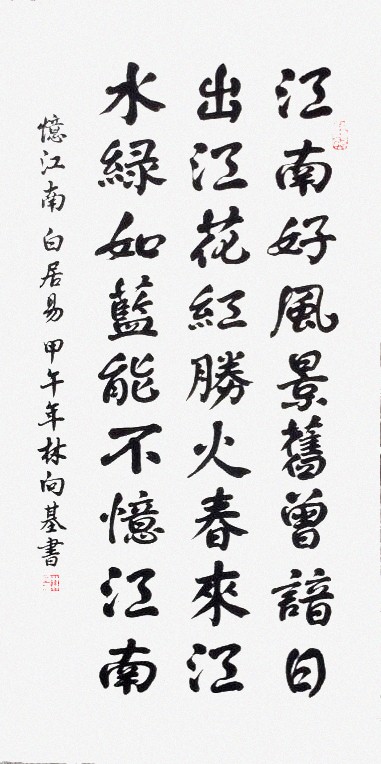 江南好風景舊曾諳日
出江花紅勝火春來江
水綠如藍能不憶江南
憶江南白居易甲午年林向基書